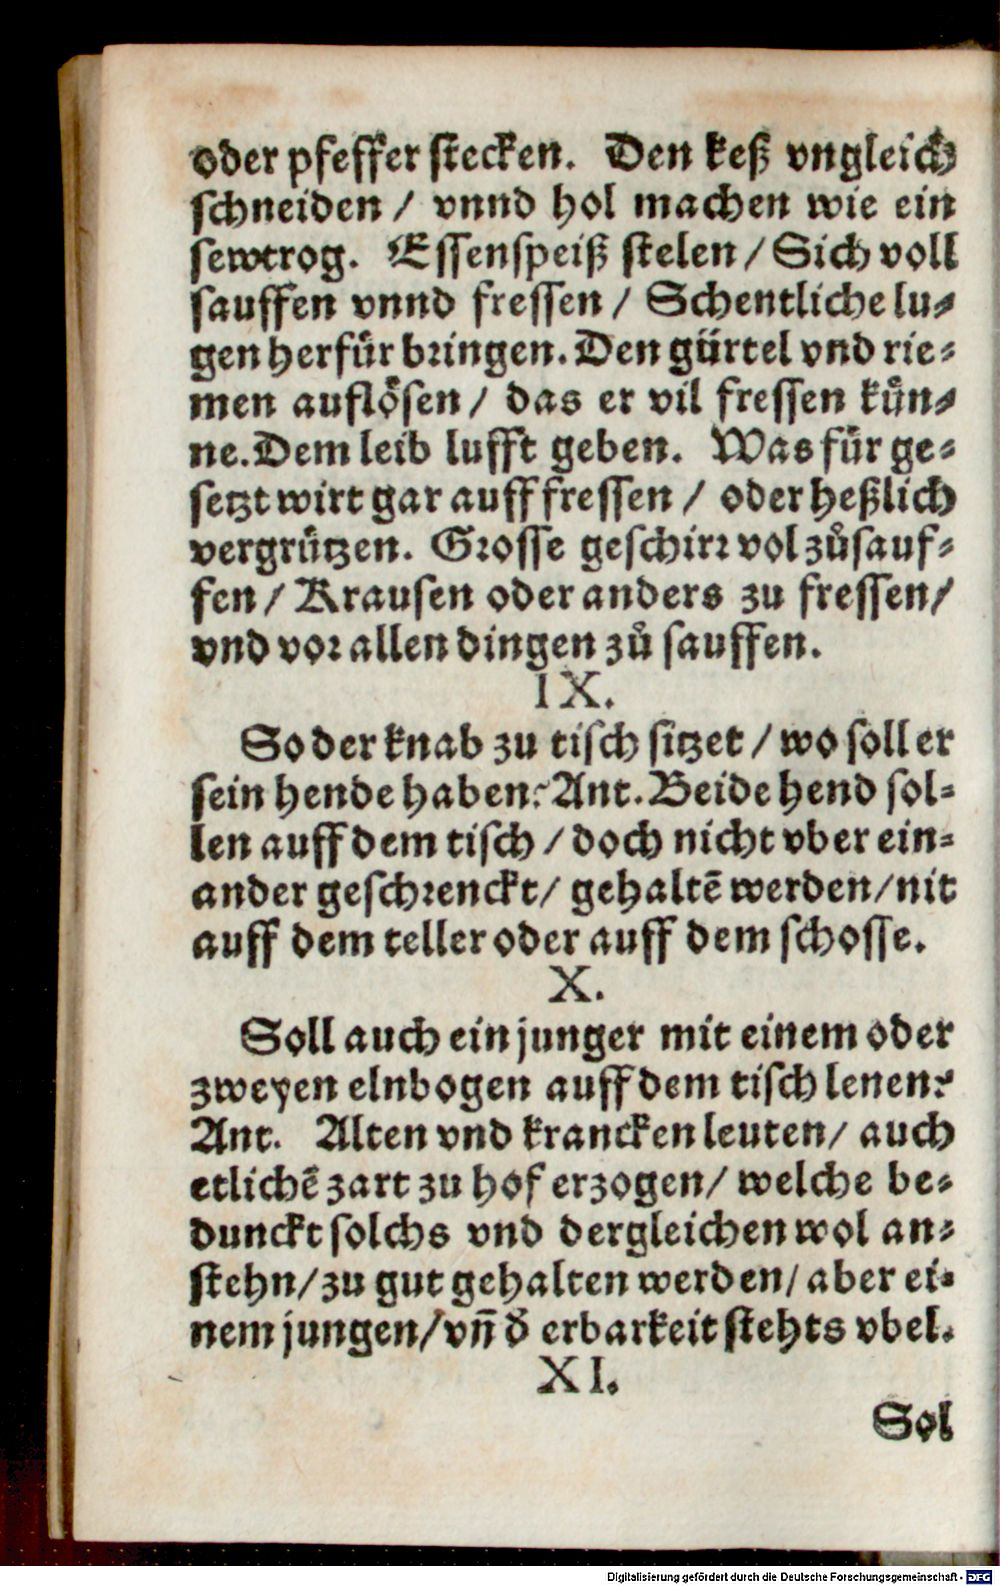 oder pfeffer stecken. Den keß vngleich
schneiden / vnnd hol machen wie ein
sewtrog. Essenspeiß stelen / Sich voll
sauffen vnnd fressen / Schentliche lu⸗
gen herfuͤr bringen. Den guͤrtel vnd rie⸗
men aufloͤsen / das er vil fressen kuͤn⸗
ne. Dem leib lufft geben. Was fuͤr ge⸗
setzt wirt gar auff fressen / oder heßlich
vergruͤtzen. Grosse geschirr vol zuͦsauf⸗
fen / Krausen oder anders zu fressen /
vnd vor allen dingen zuͦ sauffen.
IX.
So der knab zu tisch sitzet / wo soll er
sein hende haben? Ant. Beide hend sol⸗
len auff dem tisch / doch nicht vber ein⸗
ander geschrenckt / gehaltē werden / nit
auff dem teller oder auff dem schosse.
X.
Soll auch ein junger mit einem oder
zweyen elnbogen auff dem tisch lenen?
Ant. Alten vnd krancken leuten / auch
etlichē zart zu hof erzogen / welche be⸗
dunckt solchs vnd dergleichen wol an⸗
stehn / zu gut gehalten werden / aber ei⸗
nem jungen / vn̄ d̄ erbarkeit stehts vbel.
XI.
Sol
Digitalisierung gefördert durch die Deutsche Forschungsgemeinschaft - DFG